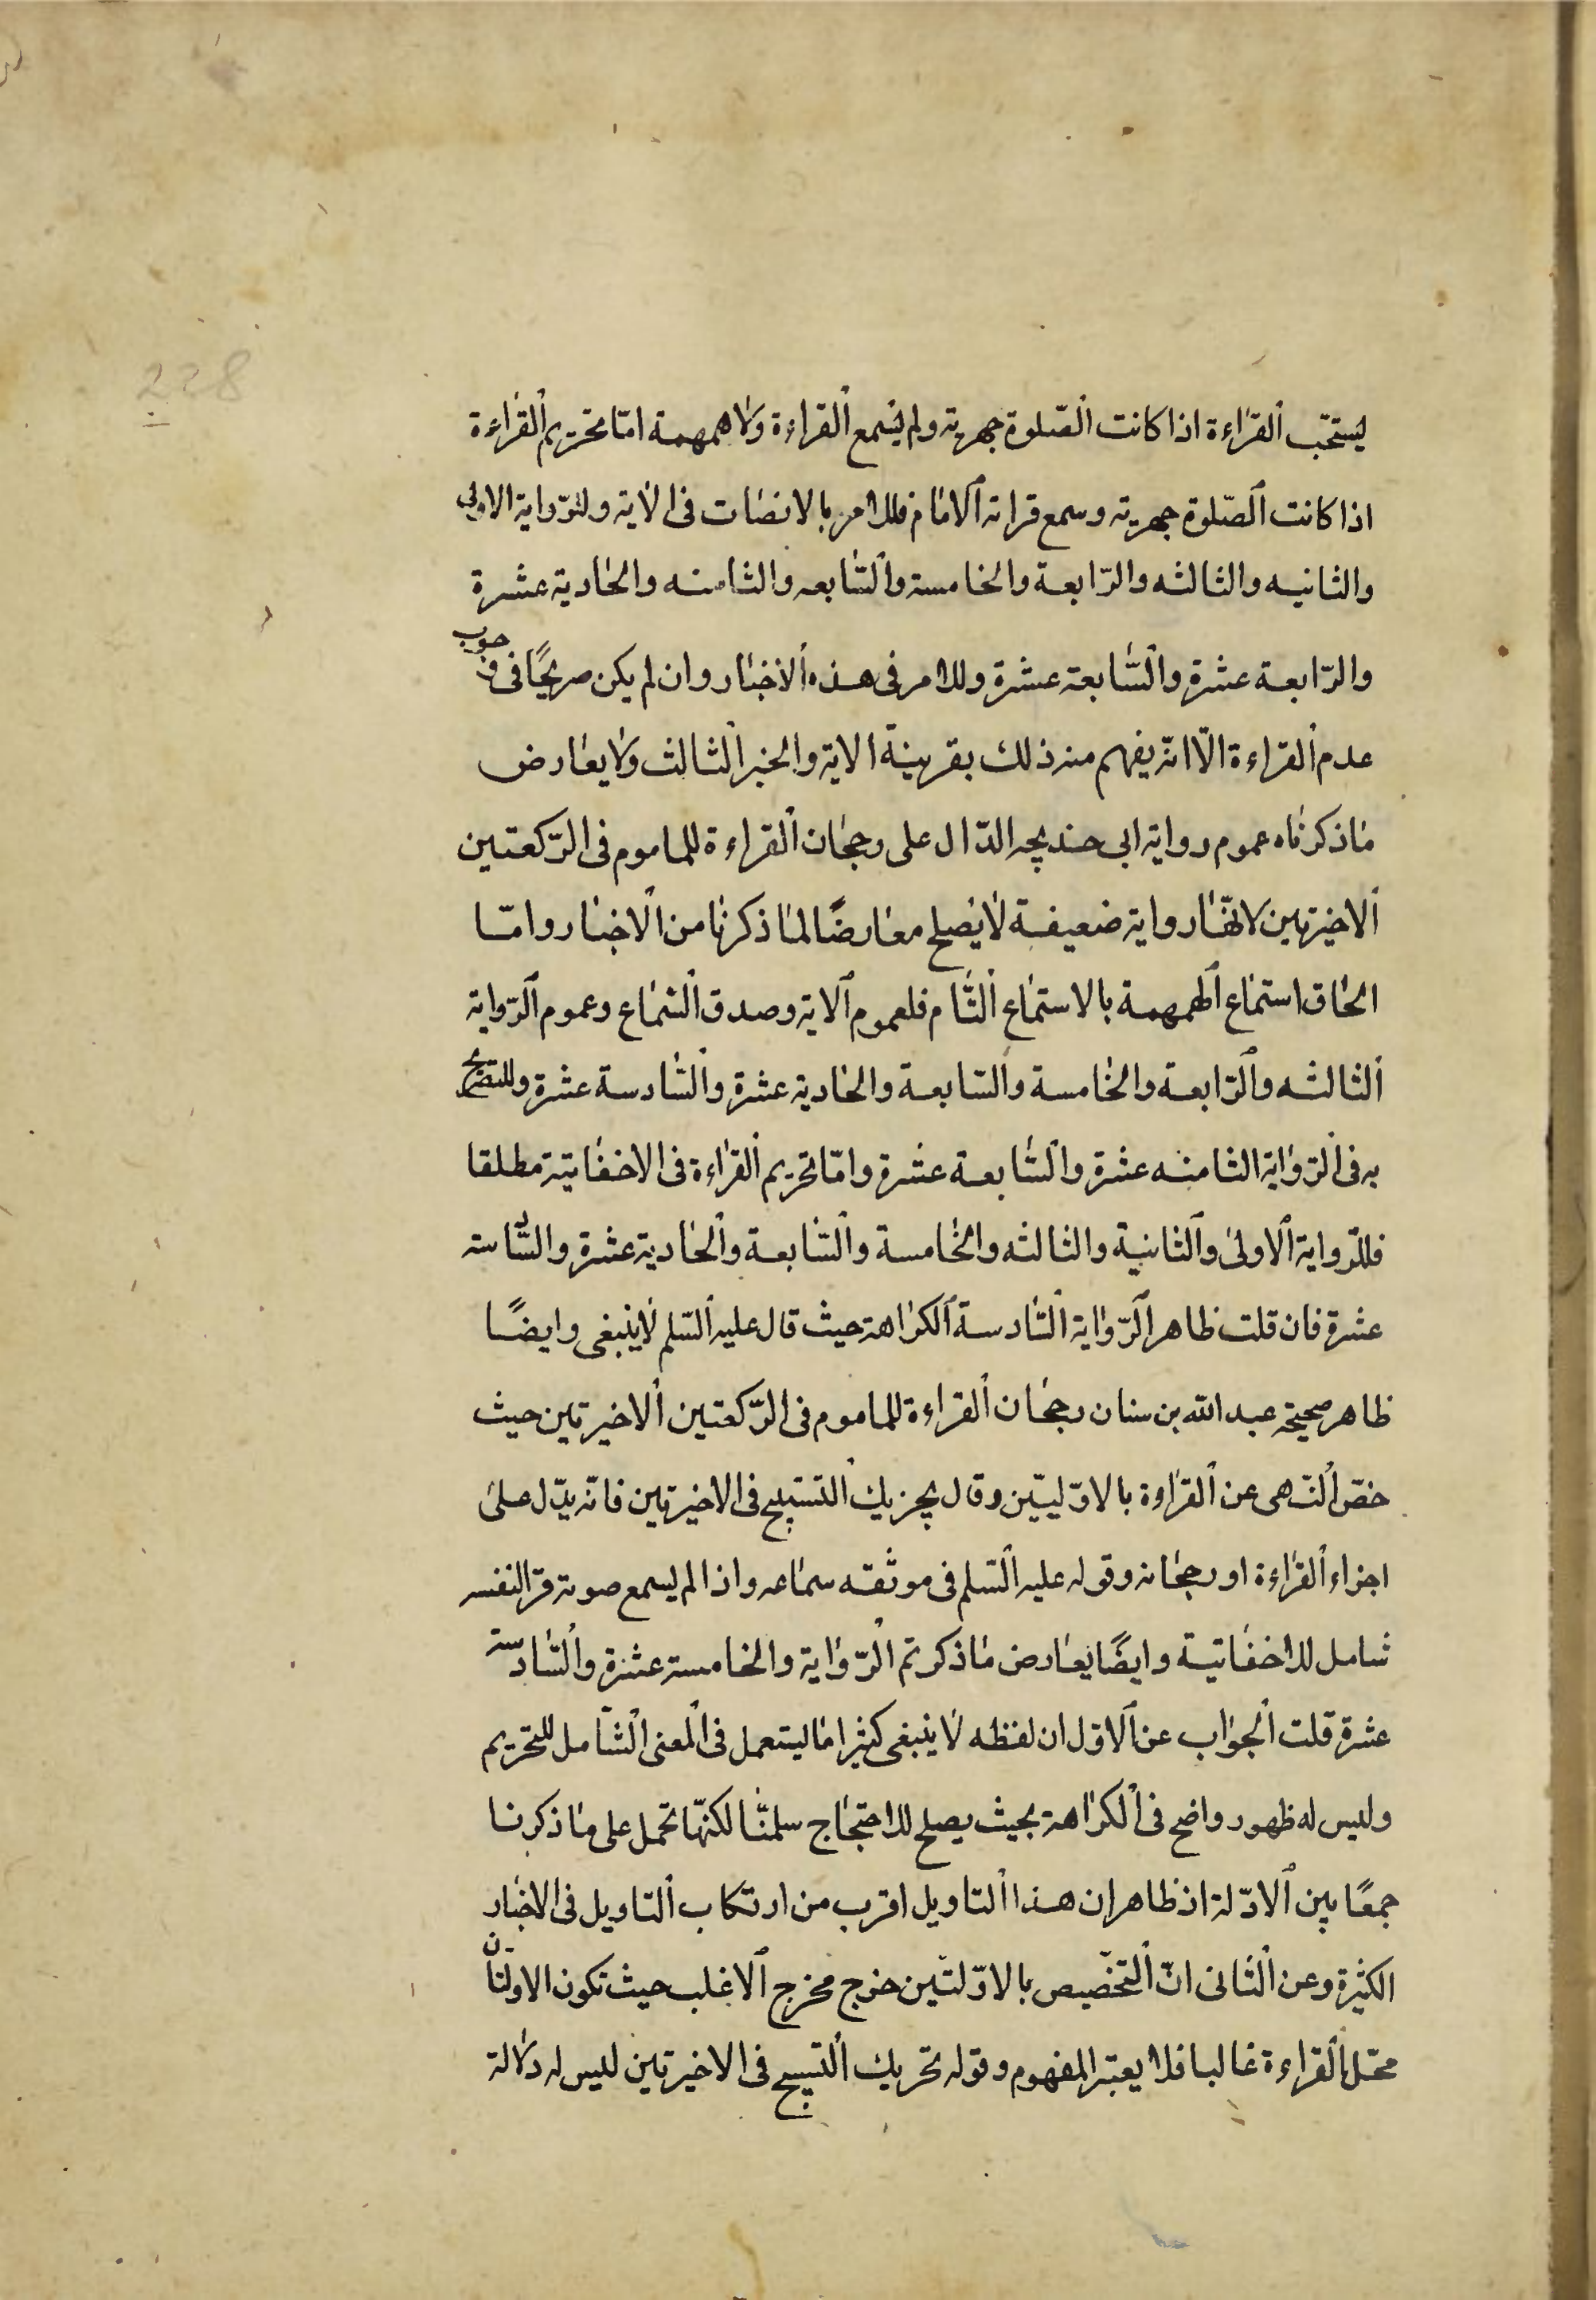 228
يستحّب القراءة اذا كانت الصّلوة جهرية ولم يسمع القراءة ولا همهمة امّا تحريم القراءة
اذا كانت الصّلوة جهريّة وسمع قراته الامام فللامر بالانصات فى الاية وللرّواية الاولى
والثانيه والثالثه والرّابعة والخامسة والسّابعه والثامنه والحادية عشرة
والرّابعة عشرة والسّابعة عشرة وللامر فى هذه الاخبار وان لم يكن صريحًا فى وجوب
عدم القراءة الّا انّه يفهم منه ذلك بقرينة الاية والخبر الثالث ولا يعارض
ما ذكرناه عموم رواية ابى خديجه الدّال على رجحان القراءة للماموم فى الرّكعتين
الاخيرتين لانّها رواية ضعيفة لا يصلح معارضًا لما ذكرنا من الاخبار وامّا
الحاق استماع الهمهمة بالاستماع التّام فلعموم الاية وصدق السّماع وعموم الرّواية
الثالثه والرّابعة والخامسة والسّابعة والحادية عشرة والسّادسة عشرة وللتصريح
به فى الرّواية الثامنه عشرة والسّابعة عشرة وامّا تحريم القراءة فى الاخفاتية مطلقا
فللرّواية الاولى والثانية والثالثه والخامسة والسّابعة والحادية عشرة والسّادسة
عشرة فان قلت ظاهر الرّواية السّادسة الكراهة حيث قال عليه السّلم لا ينبغى وايضًا
ظاهر صحيحة عبد الله بن سنان رجحان القراءة للماموم فى الرّكعتين الاخيرتين حيث
خصّ النّهى عن القراءة بالاوّليين وقال يجزيك التسبيح فى الاخيرتين فانّه يدّل على
اجزاء القراءة او رجحانه وقوله عليه السّلم فى موثقه سماعه واذا لم يسمع صوته قرا لنفسه
شامل للاخفاتية وايضًا يعارض ما ذكرتم الرّواية والخامسة عشرة والسّادسة
عشرة قلت الجواب عن الاوّل ان لفظه لا ينبغى كثيرا ما يستعمل فى المعنى الشّامل للتحريم
وليس له ظهور واضح فى الكراهة بحيث يصلح للاحتجاج سلمنّا لكنّها تحمل على ما ذكرنا
جمعًا بين الادّلة اذ ظاهر ان هذا التاويل اقرب من ارتكاب التاويل فى الاخبار
الكثيرة وعن الثانى انّ التخّصيص بالاوّلتين خرج مخرج الاغلب حيث تكون الاولتان
محّل القراءة غالبا فلا يعتبر المفهوم وقوله تحريك التسبيح فى الاخيرتين ليس له دلالة